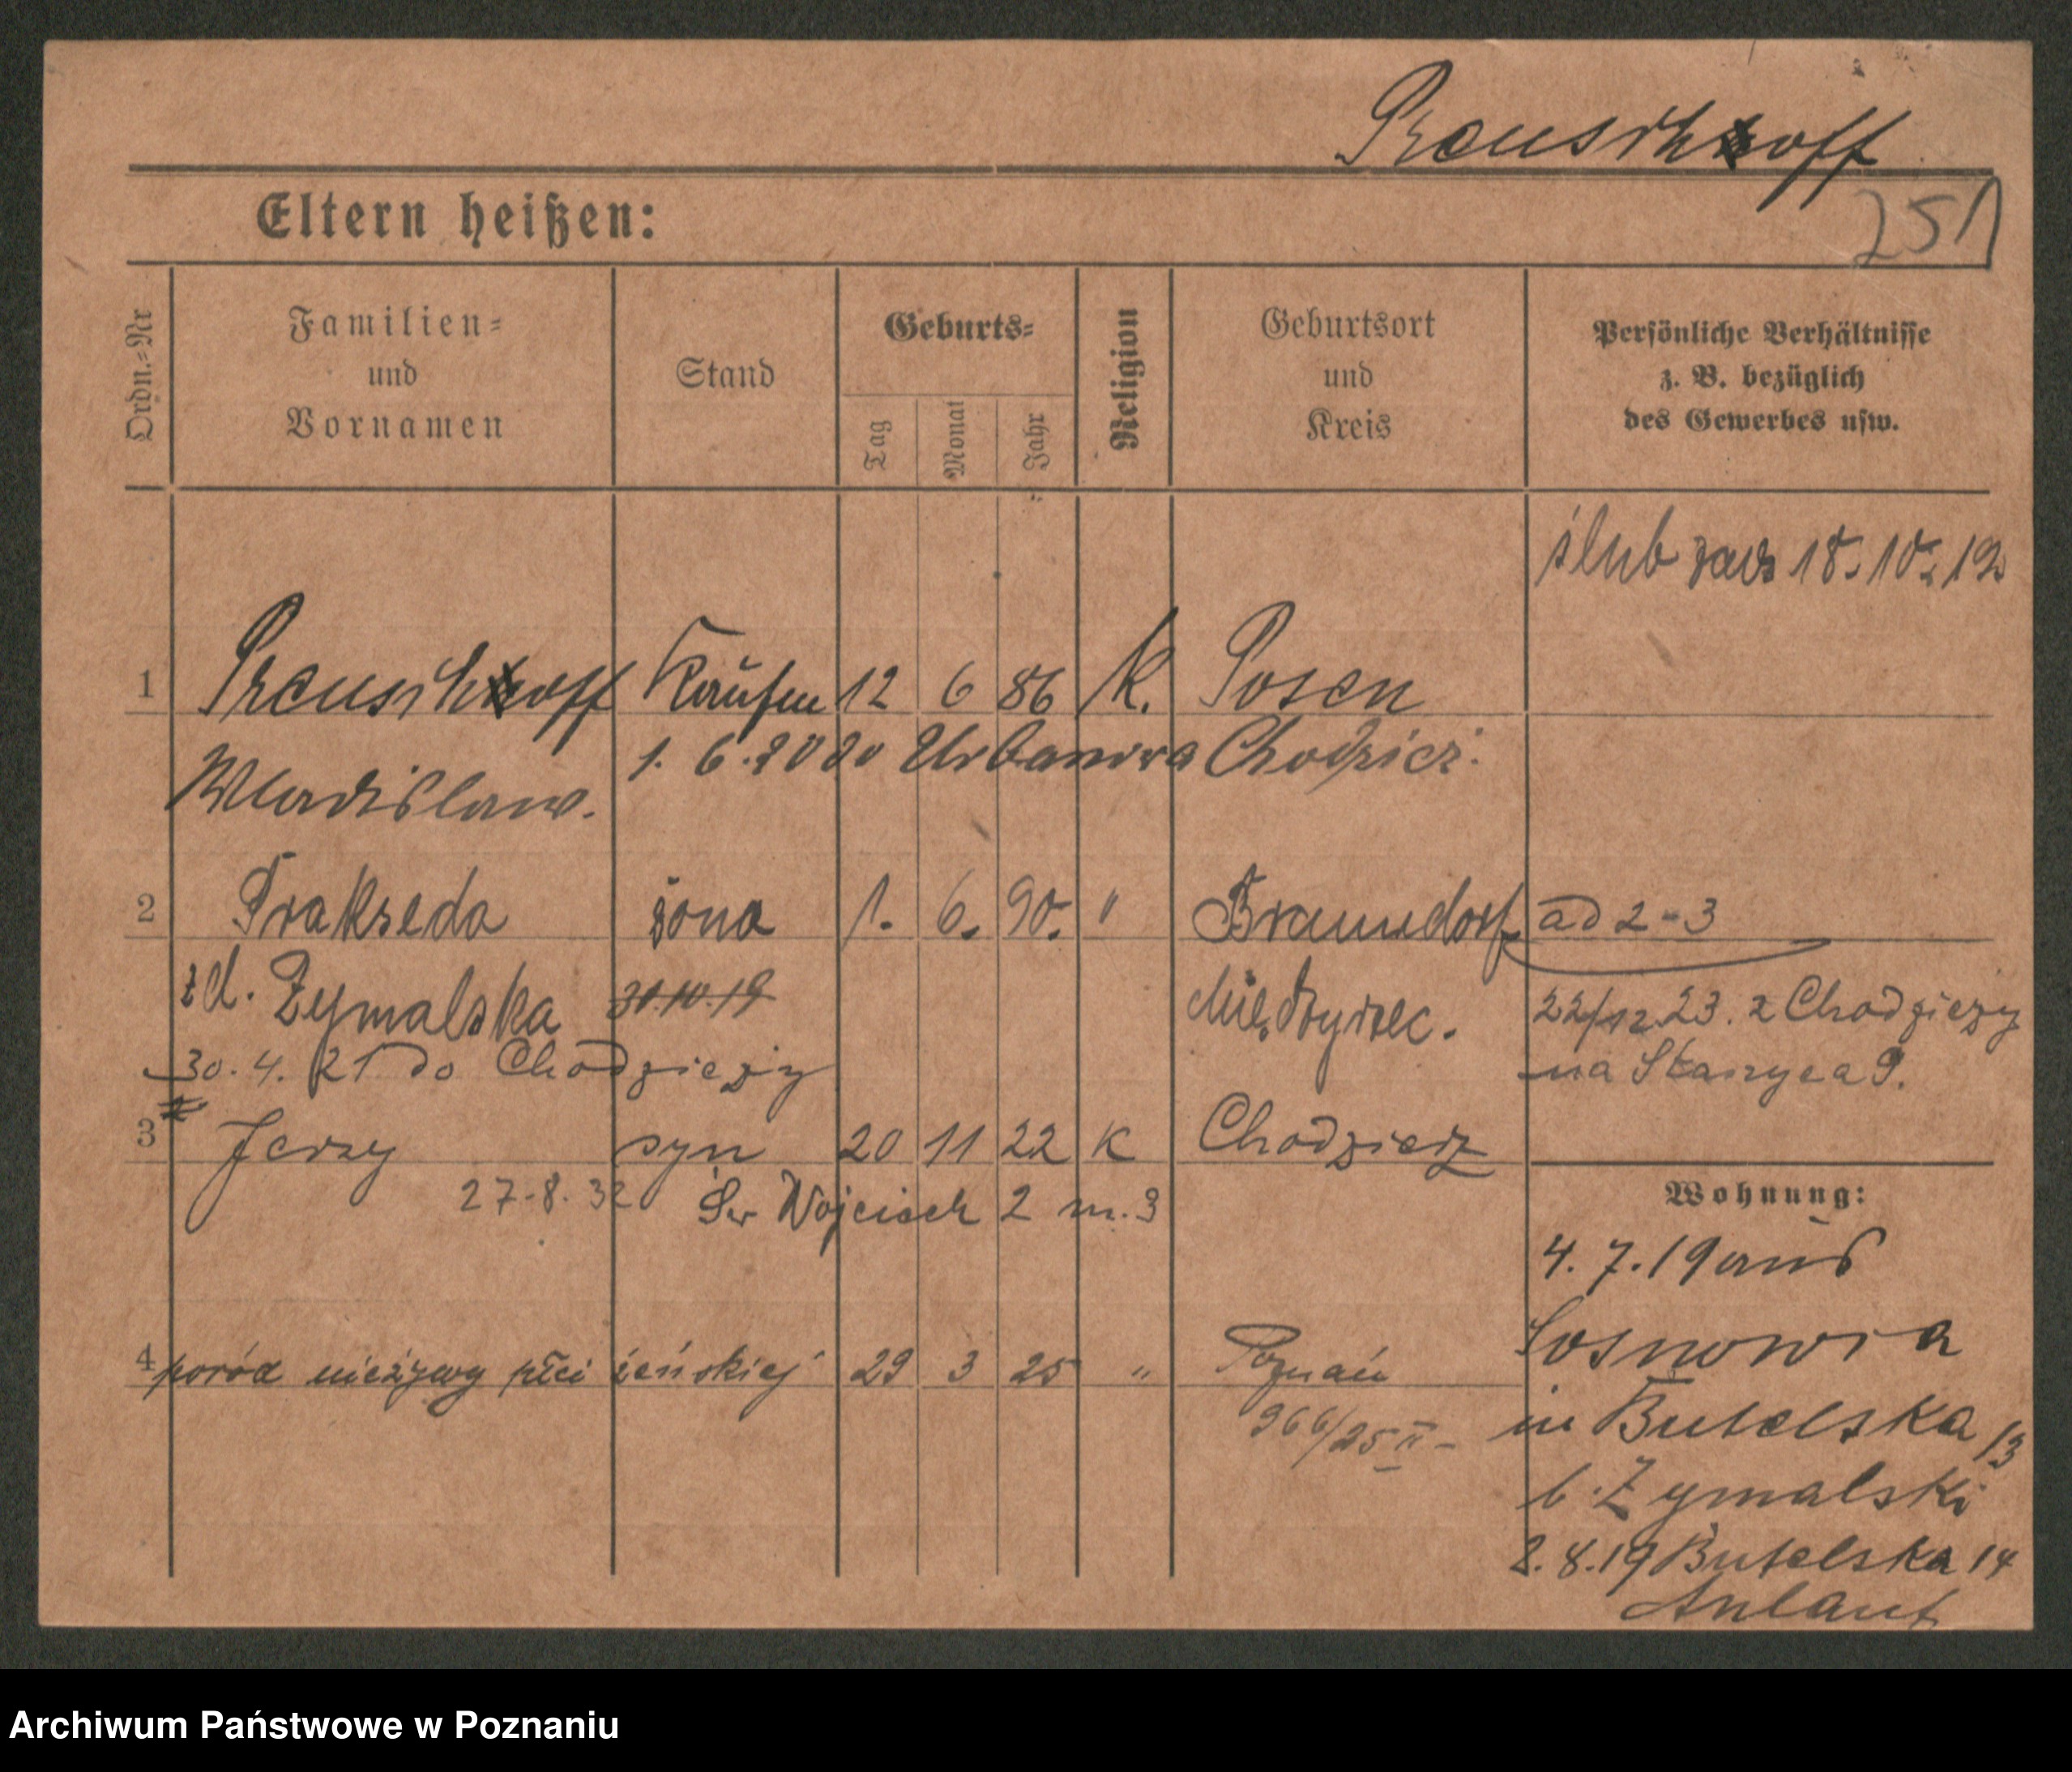 Preuschhoff
Eltern heißen:
251
Ordn.=Nr
Familien= und Vornamen
Stand
Geburts=
Tag
Monat
Jahr
Religion
Geburtsort und Kreis
Persönliche Verhältnisse
z. B. bezüglich
des Gewerbes usw.
ślub zaw 18. 10. 19
1 Preuschhoff Kaufm 12 6 86 K. Posen
1. 6. 2020 Chodzież.
Wladislaw.
2 Prakseda żona 1. 6. 90. " Braunsdorf ad 2-3
zd. Żymalska 30.10.19 Międzyrzec.
22/12 23. z Chodzieży
30. 4. 21 do Chodzieży
na 9.
3 Jerzy syn 20 11 22 K Chodzież
27.8.32 Św Wojciech 2 m. 3
Wohnung:
4. 7. 19 aus
in Butelska 13
4 poród nieżywy płci żeńskiej 29 3 25 " Poznań
966/25 II -
b. Żymalski
8. 19 Butelska 14
Anlauf
Archiwum Państwowe w Poznaniu